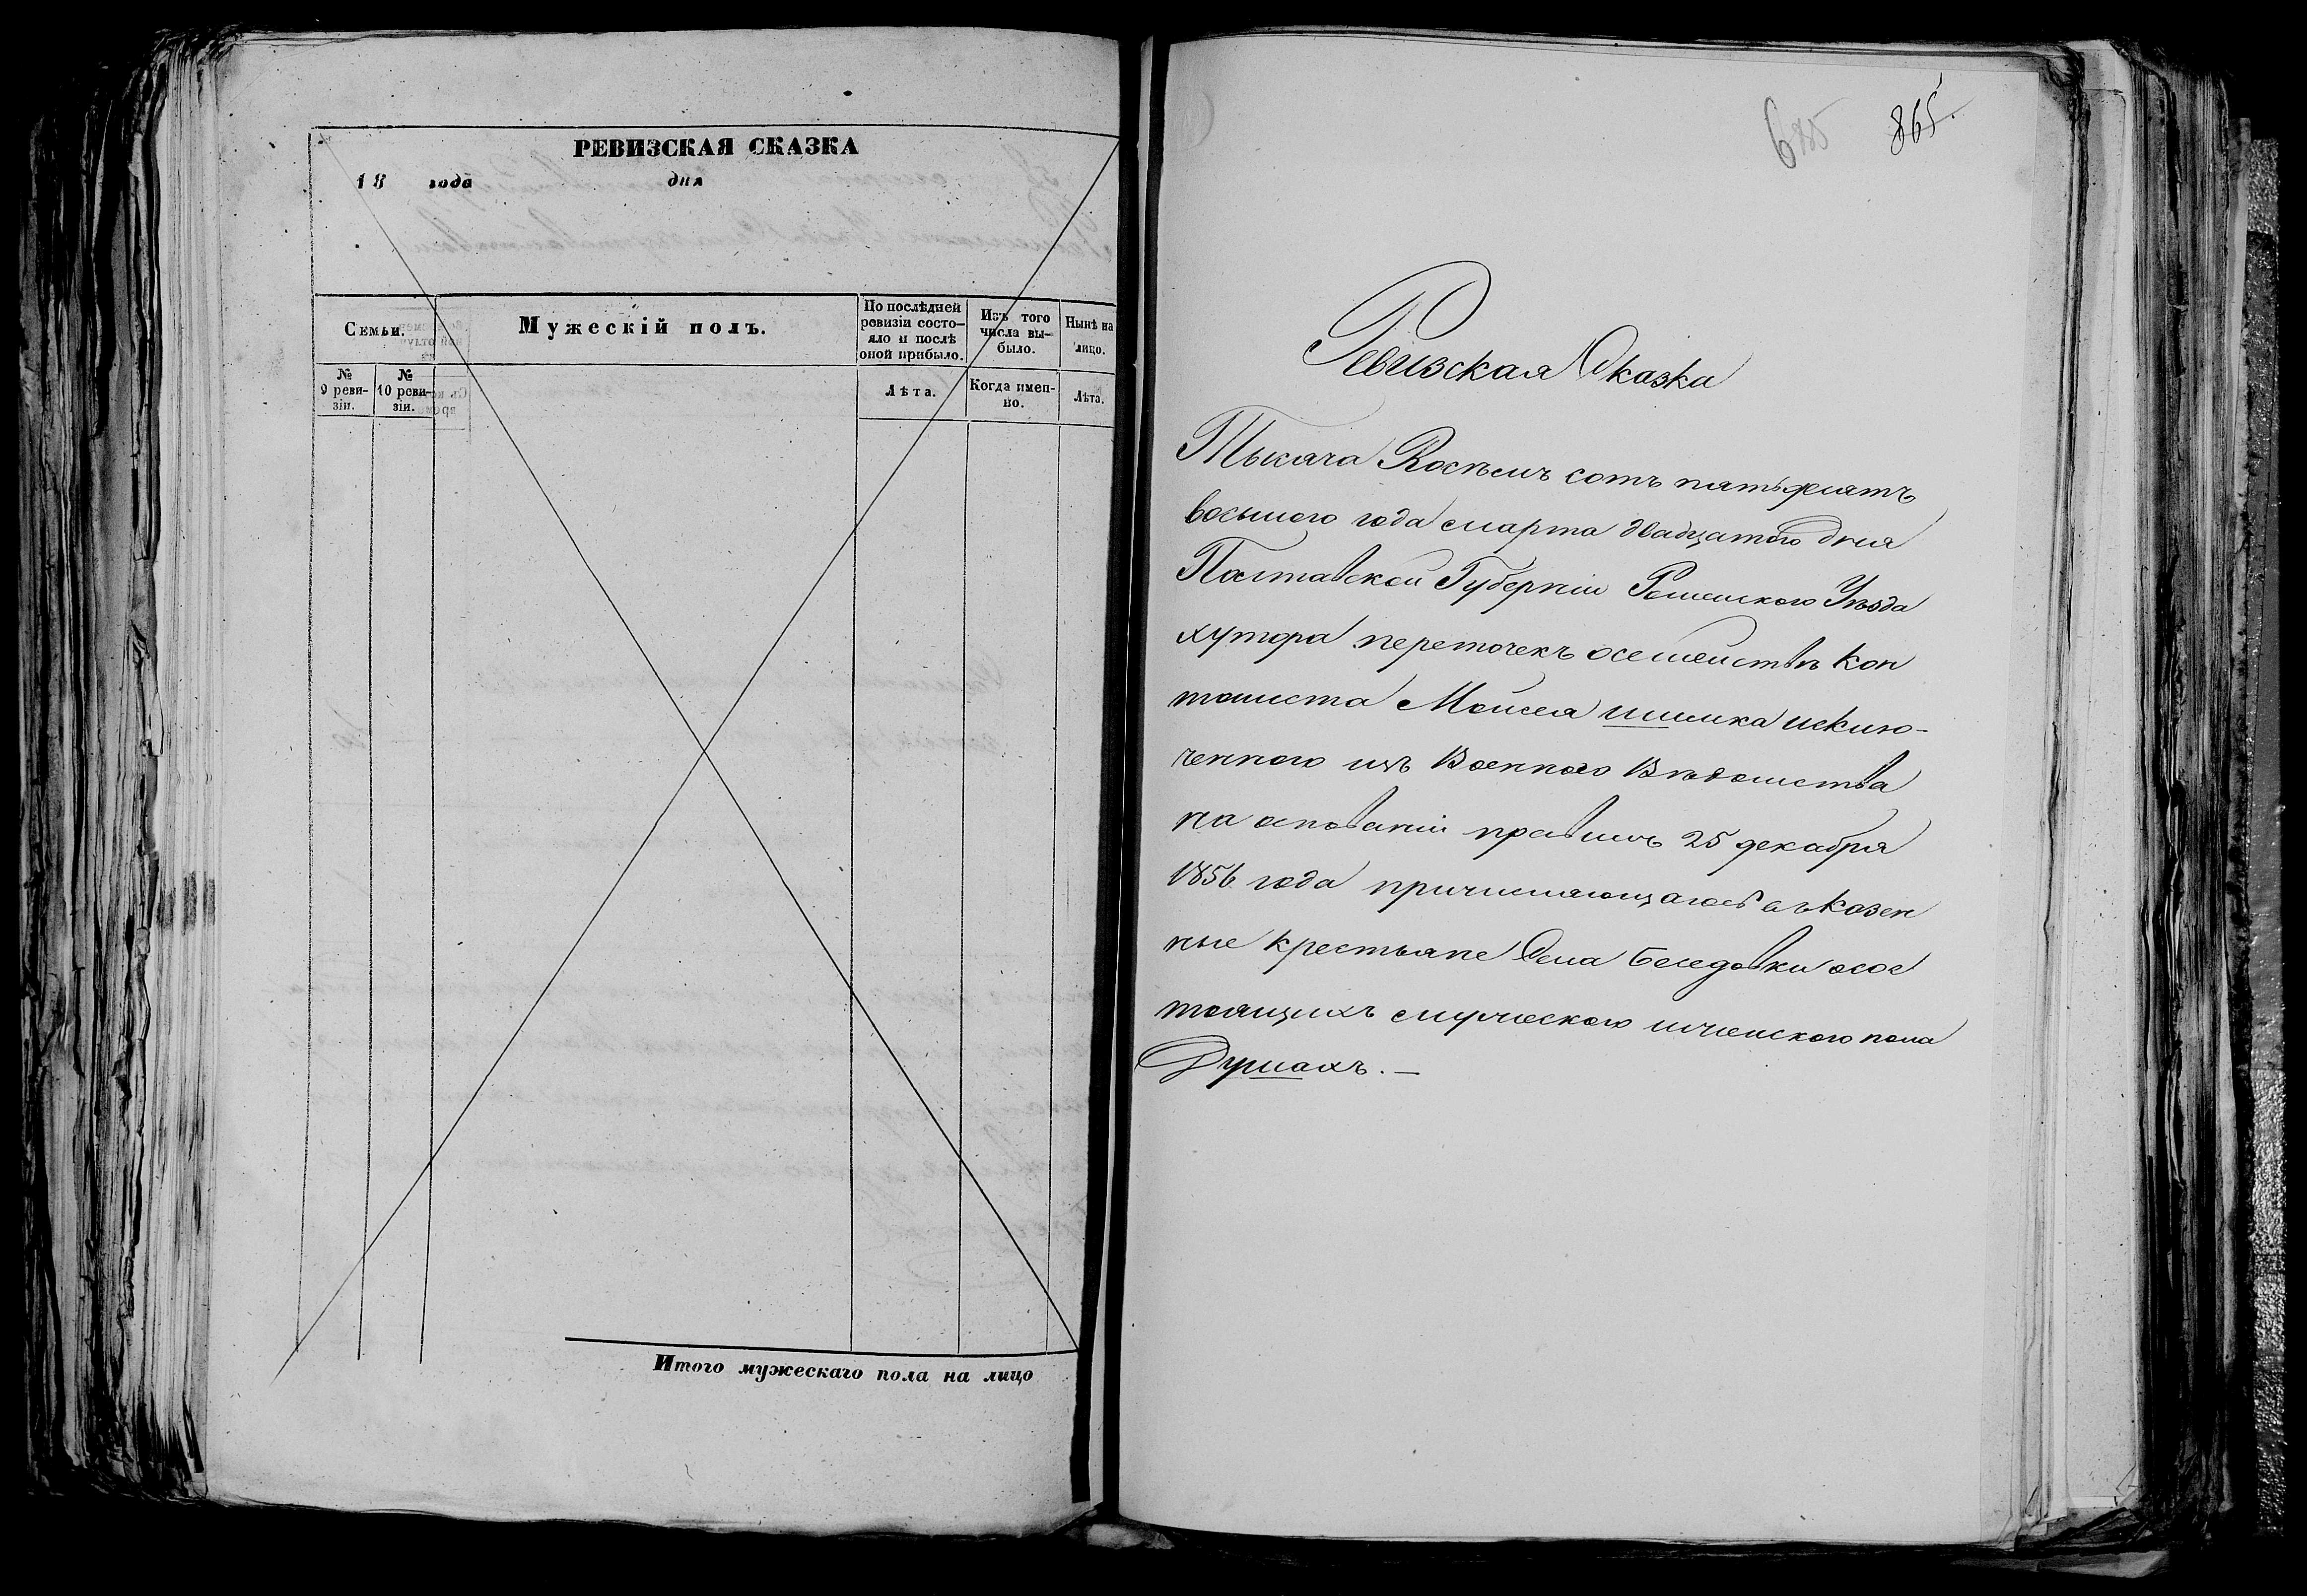 РЕВИЗСКАЯ СКАЗКА
18 года дня
Семьи.
Мужескій полъ.
По послѣдней ревизіи состо-яло и послѣ оной прибыло.
Изъ того числа вы-было.
Нынѣ на лицо.
№ 9 реви-зіи.
№ 10 реви-зіи.
Лѣта.
Когда имен-но.
Лѣта.
Итого мужескаго пола на лицо
865.
Ревизская Сказка
Тысяча Восѣмъ сотъ пятьдесятъ
восьмого года марта двадцатого дня
Полтавской Губерніи Роменского Уѣзда
хутора переточекъ осемействѣ Кан
тониста Мойсея шишка исклю-
ченного изъ Военного Вѣдомства
на основаніи правилъ 25 декабря
1856 года причисляющагося въ Казен
ные крестьяне Села Беседовки осос
тоящихъ мужеского иженского пола
Душахъ. —